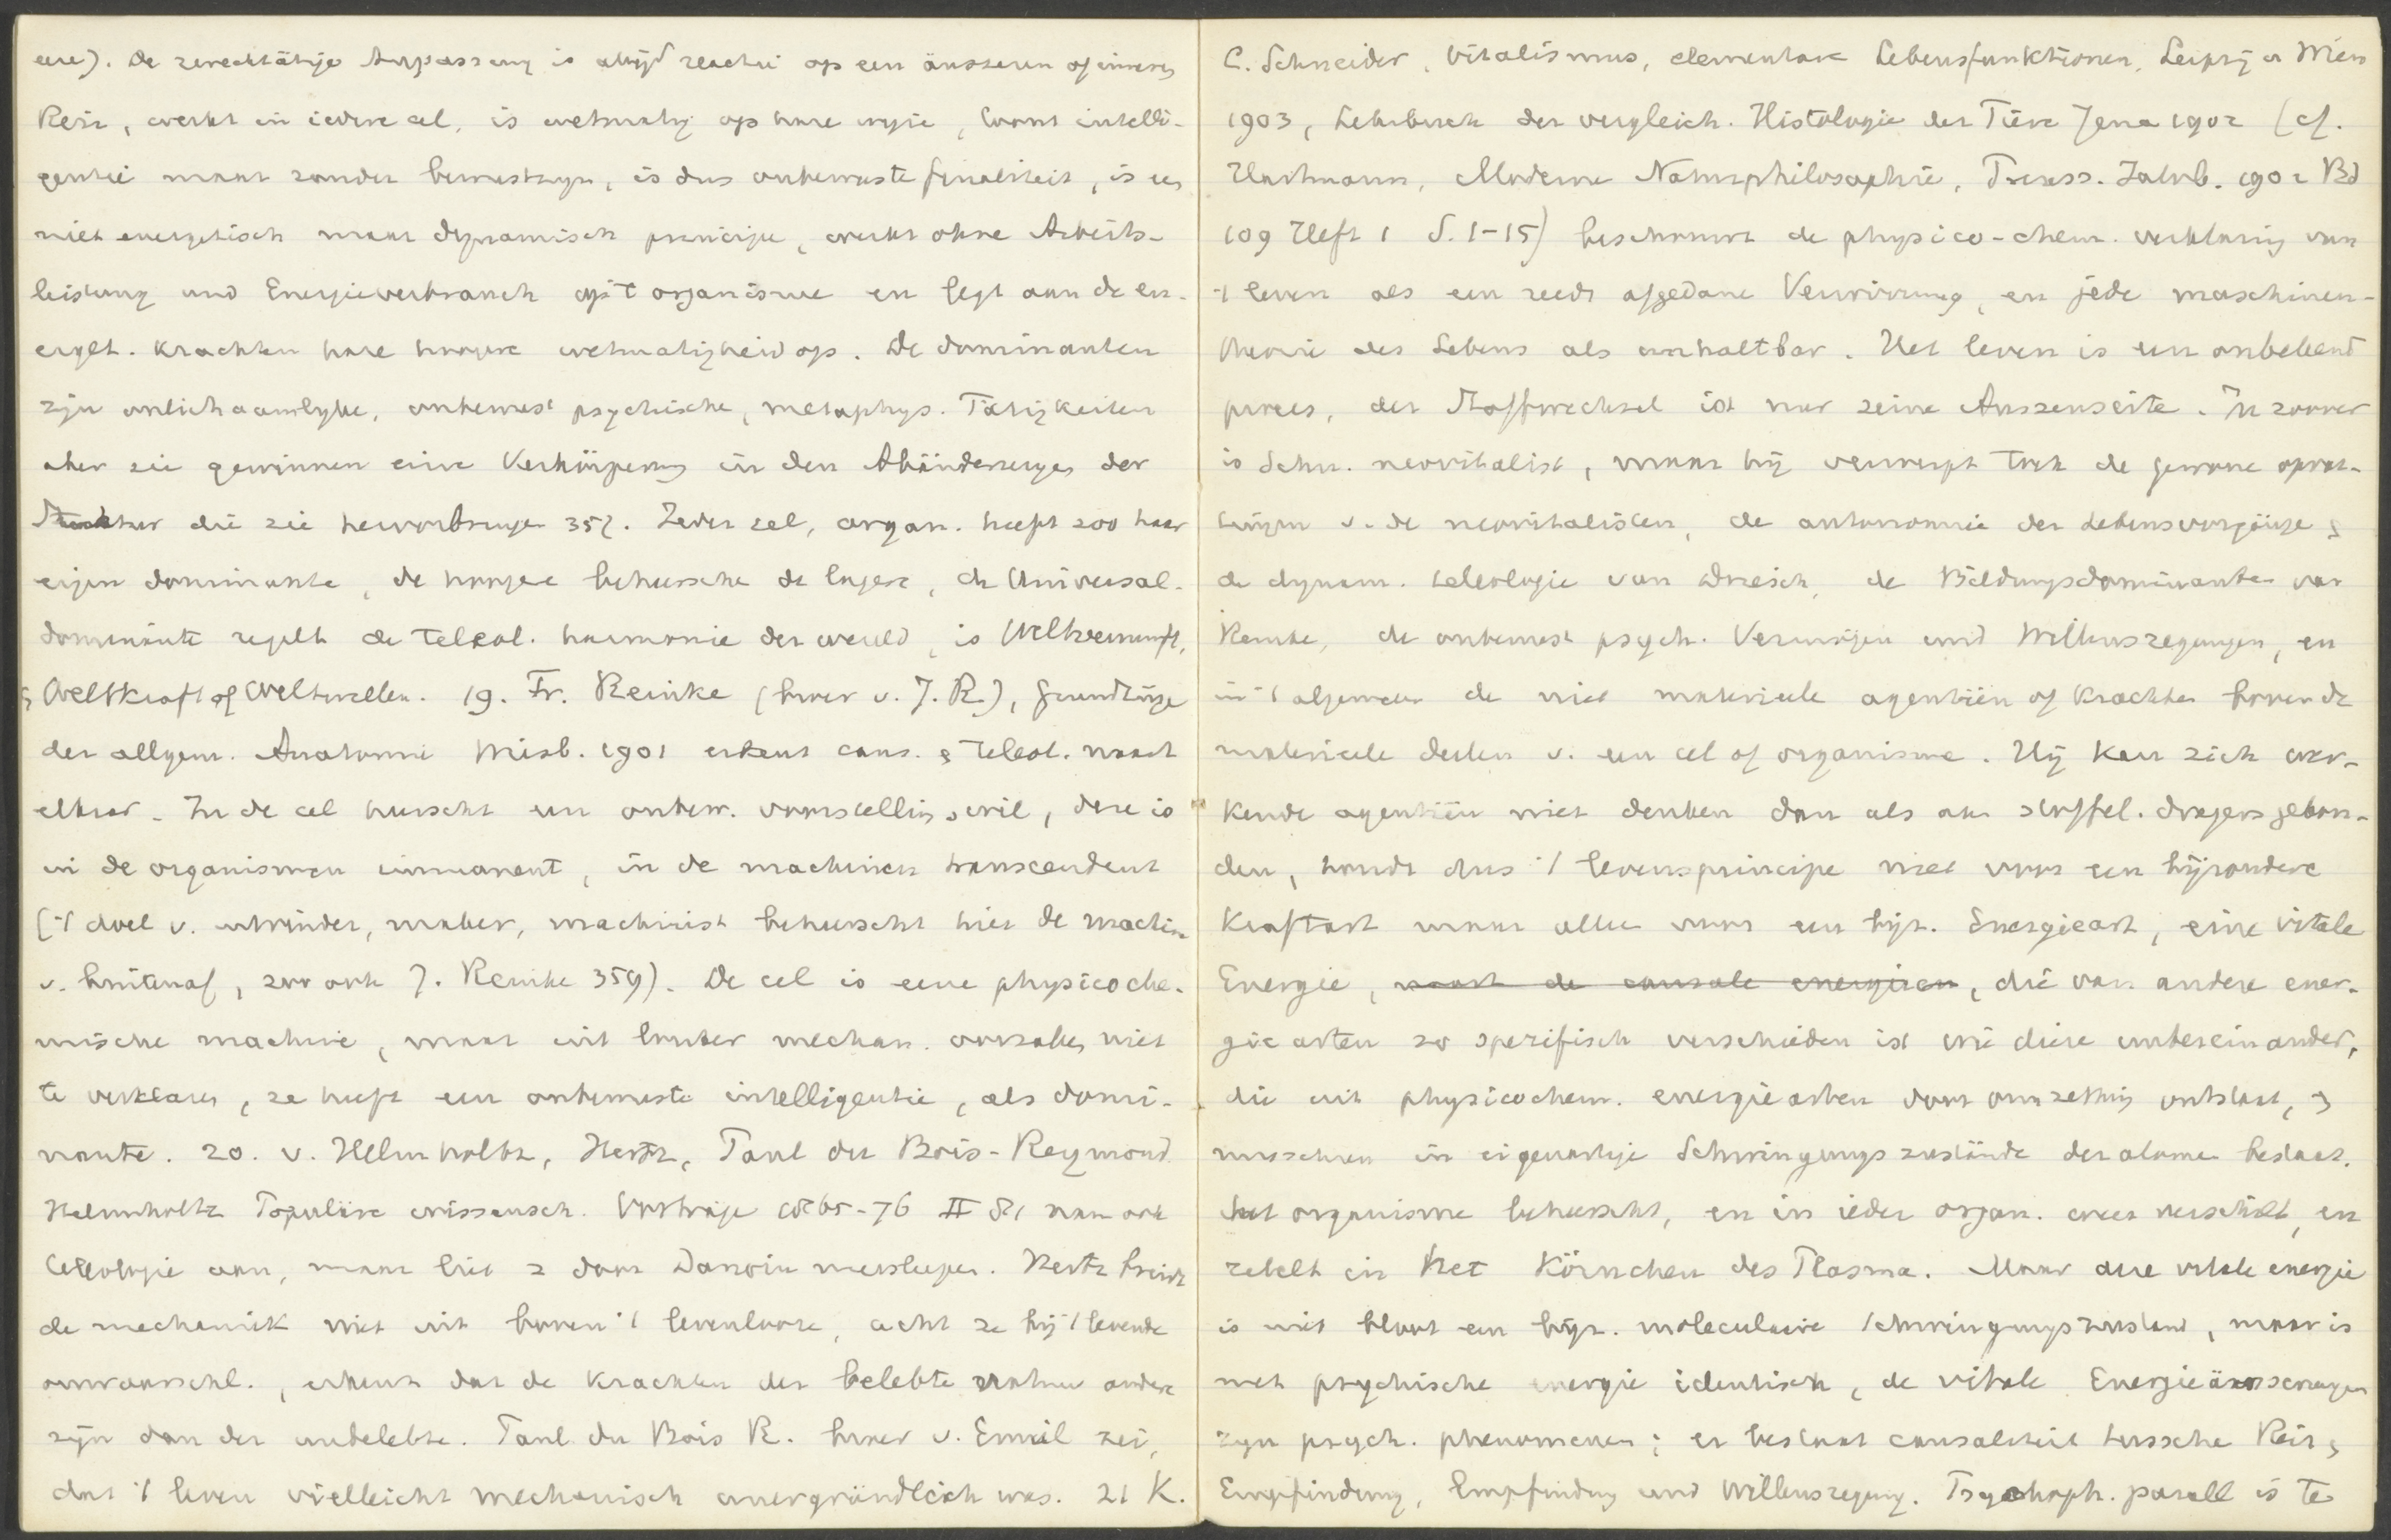 eere). De zwecktätige Anpassung is altijd reactie op een äusseren of inneren
Reiz, werkt in iedere cel, is wetmatig op hare wijze, toont intelli-
gentie maar zonder bewustzijn, is dus onbewuste finaliteit, is een
niet energetisch maar dynamisch principe, werkt ohne Arbeits-
leistung und Energieverbrauch op 't organisme en legt aan de en-
erget. krachten hare hoogere wetmatigheid op. De dominanten
zijn onlichaamlijke, onbewust psychische, metaphys. Tätigkeiten
aber sie gewinnen eine Verkörperung in den Abänderungen der
Struktur die sie hervorbringen 357. Ieder cel, organ. heeft zoo haar
eigen dominante, de hoogere beheersche de lagere, de Universal-
dominante regelt de teleol. harmonie der wereld, is Weltvernunft,
Weltkraft of Weltwillen. 19. Fr. Reinke (broer v. J. R.), Grundzüge
der allgem. Anatomie Wiesb. 1901 erkent caus. & teleol. naast
elkaar. In de cel heerscht een onbew. voorstelling & wil, deze is
in de organismen immanent, in de machinen transcendent
('t doel v. uitvinder, maker, machinist beheerscht hier de machine
v. buitenaf, zoo ook J. Reinke 359). De cel is eene physicoche-
mische machine, maar uit louter mechan. oorzaken niet
te verklaren, ze heeft een onbewuste intelligentie, als domi-
nante. 20. v. Helmholtz, Hertz, Paul du Bois-Reymond.
Helmholtz Populäre wissensch. Vorträge 1865-76 II 81 nam ook
teleologie aan, maar liet z door Darwin meesleepen. Hertz breidt
de mechanik niet uit boven 't levenlooze, acht ze bij 't levende
onwaarschl., erkent dat de krachten der belebte natuur andere
zijn dan der unbelebte. Paul du Bois R. broer v. Emil zei,
dat 't leven vielleicht mechanisch unergründlich was. 21 K.
C. Schneider, Vitalismus, elementare Lebensfunktionen, Leipzig u Wien
1903, Lehrbuch der vergleich. Histologie der Tiere Jena 1902 (cf.
Hartmann, Moderne Naturphilosophie, Preuss. Jahrb. 1902 Bd
109 Heft 1 S. 1-15) beschouwt de physico-chem. verklaring van
't leven als een reeds afgedane Verwirrung, en jede maschinen-
theorie des Lebens als unhaltbar. Het leven is een onbekend
proces, der Stoffwechsel ist nur seine Aussenseite. In zoover
is Schn. neovitalist, maar hij verwerpt toch de gewone opvat-
tingen v. de neovitalisten, de autonomie der Lebensvorgänge &
de dynam. teleologie van Driesch, de Bildungsdominanten van
Reinke, de onbewust psych. Vermögen und Willensregungen, en
in 't algemeen de niet materieele agentiën of krachten boven de
materieele deelen v. een cel of organisme. Hij kan zich wer-
kende agentiën niet denken dan als aan stoffel. dragers gebon-
den, houdt dus 't levensprincipe niet voor een bijzondere
Kraftart maar alleen voor een bijz. Energieart, eine vitale
Energie, naast de causale energieen, die van andere ener-
gie arten so spezifisch verschieden ist wie diese untereinander,
die uit physicochem. energiearten door omzetting ontstaat, &
misschien in eigenartige Schwingungszustände der atome bestaat.
het organisme beheerscht, en in ieder organ. weer verschilt, en
zetelt in het Körnchen des Plasma. Maar deze vitale energie
is niet bloot een bijz. moleculaire Schwingungszustand, maar is
met psychische energie identisch, de vitale Energieäusserungen
zijn psych. phenomenen; er bestaat causaliteit tussche Reiz &
Empfindung, Empfindung und Willensregung. Psychoph. parall is te